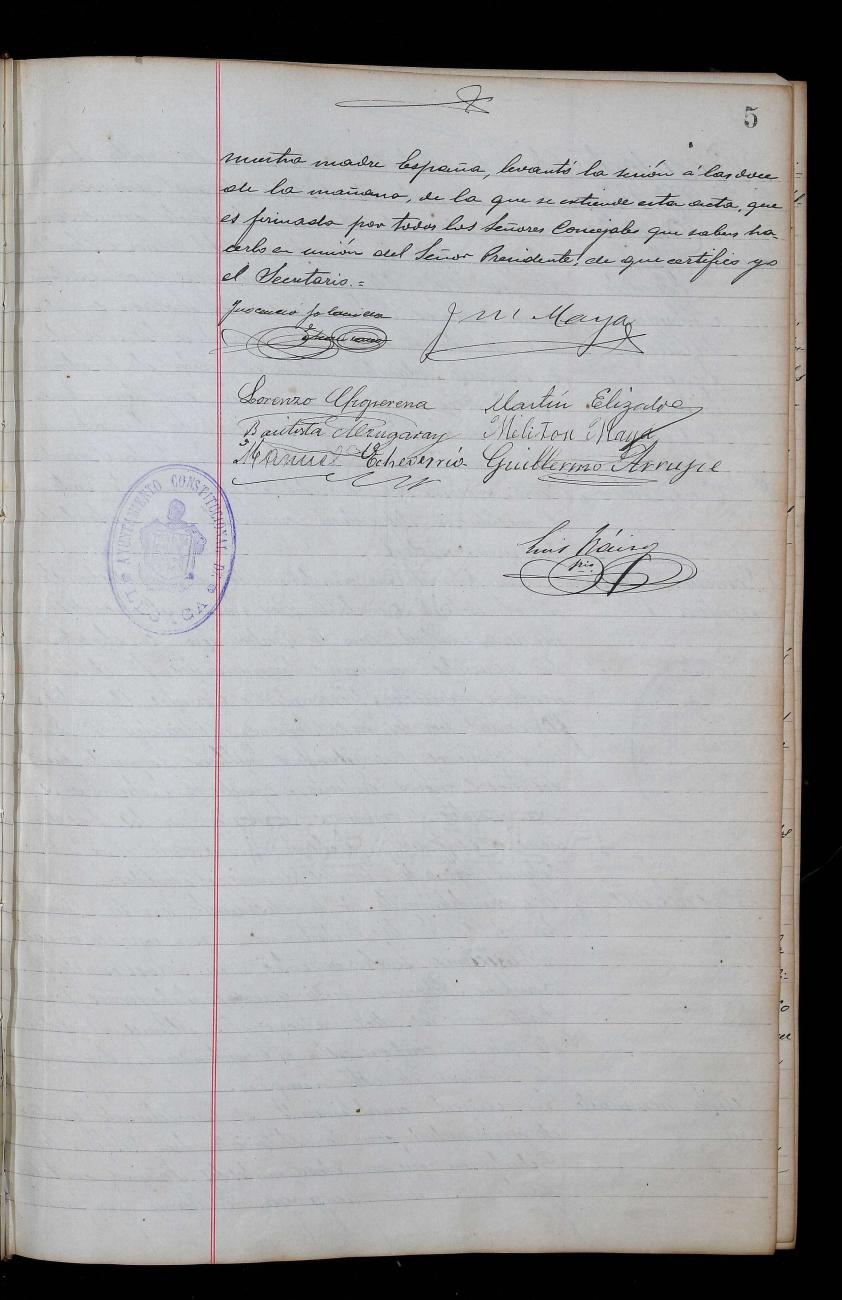 5
nuestra madre España, levantó la sesión á las doce
de la mañana, de la que se estiende esta acta, que
es firmada por todos los Señores Concejales que saben ha-
cerlo en unión del Señor Presidente, de que certifico yo
el Secretario.=
J M Maya
Lorenzo Choperena Martín Elizalde
Bautista Alzugaray Meliton Maya
Manuel Echeverria Guillermo Arrupe
Luis
Srio
AYUNTAMIENTO CONSTITUCIONAL DE
LESACA